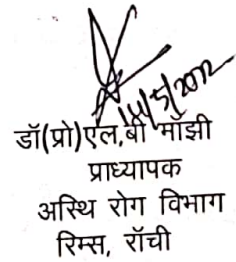 14/5/2012
डॉ(प्रो)एल.बी मॉझी
प्राध्यापक
अस्थि रोग विभाग
रिम्स, रॉची